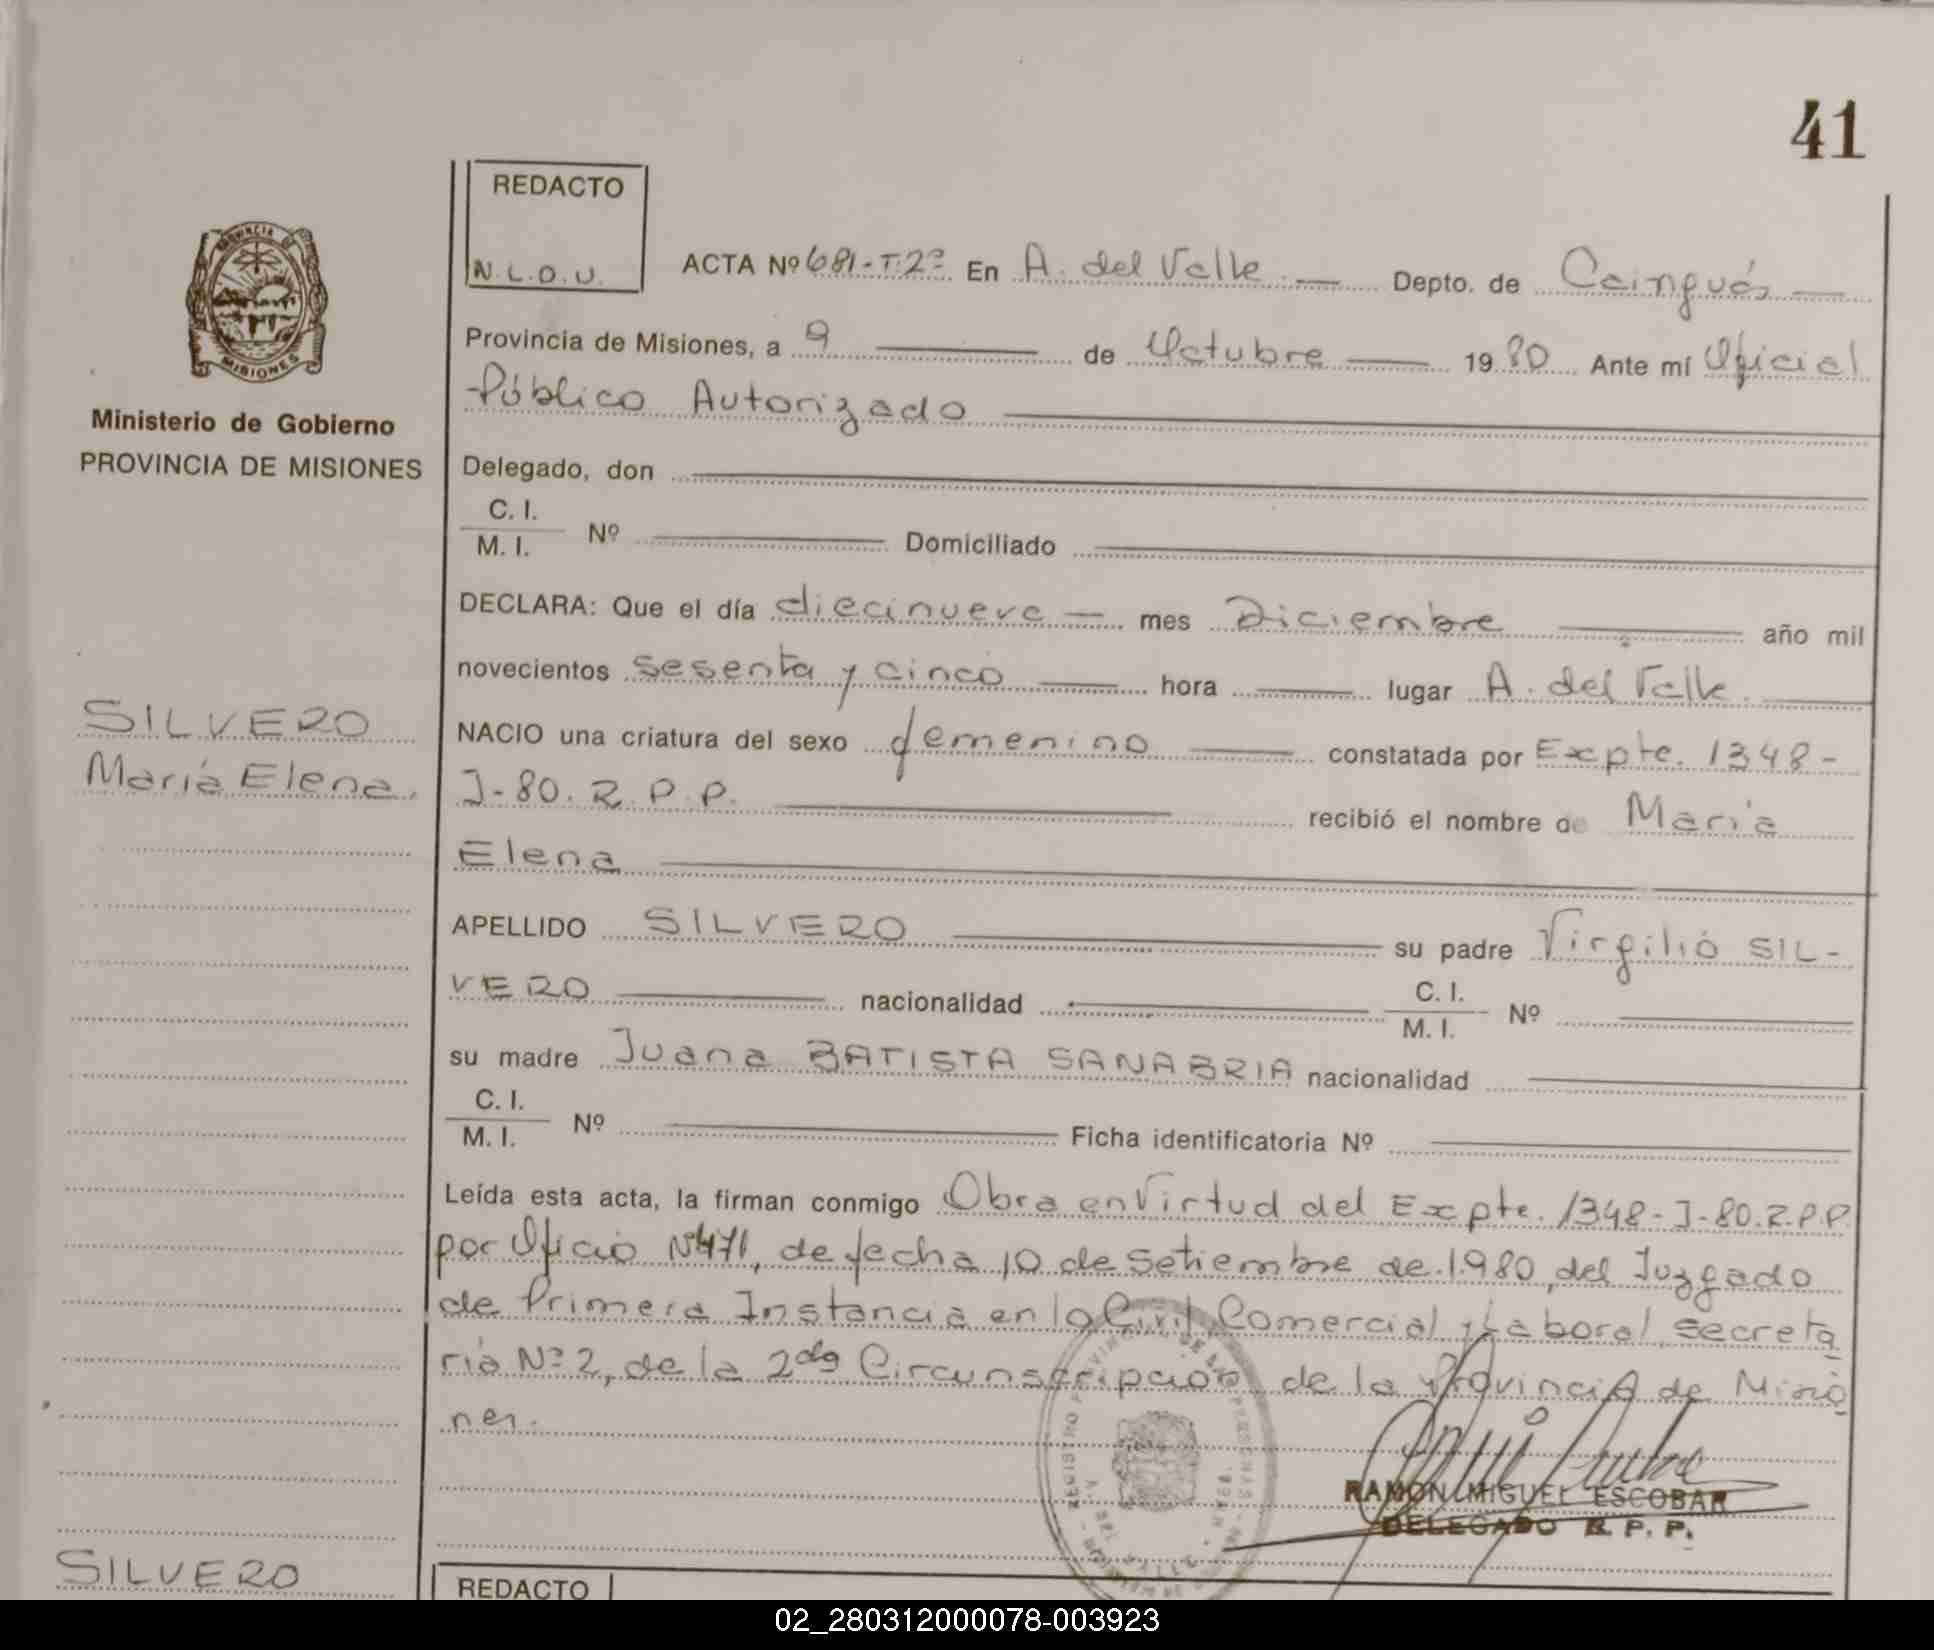 41
REDACTO
N.L.D.U.
ACTA Nº 681-T:2º En A. del Valle Depto. de Cainguás
Provincia de Misiones, a 9 de Octubre 1980 Ante mí Oficial
Público Autorizado
Ministerio de Gobierno
PROVINCIA DE MISIONES
Delegado, don
C. I.
M. I. Nº Domiciliado
DECLARA: Que el día diecinueve mes Diciembre año mil
novecientos sesenta y cinco hora lugar A. del Valle.
SILVERO
María Elena.
NACIO una criatura del sexo femenino constatada por Expte. 1348-
J-80. R.P.P. recibió el nombre de María
Elena
APELLIDO SILVERO su padre Virgilio SIL-
VERO nacionalidad C. I. M. I. Nº
su madre Juana BATISTA SANABRIA nacionalidad
C. I.
M. I. Nº Ficha identificatoria Nº
Leída esta acta, la firman conmigo Obra en Virtud del Expte. 1348-J-80.R.P.P.
por Oficio Nº471, de fecha 10 de Setiembre de 1980, del Juzgado
de Primera Instancia en lo Civil, Comercial y Laboral, secreta
ria Nº 2, de la 2da Circunscripción de la Provincia de Misio
nes.
RAMON MIGUEL ESCOBAR
DELEGADO R. P. P.
SILVERO
REDACTO
02_280312000078-003923